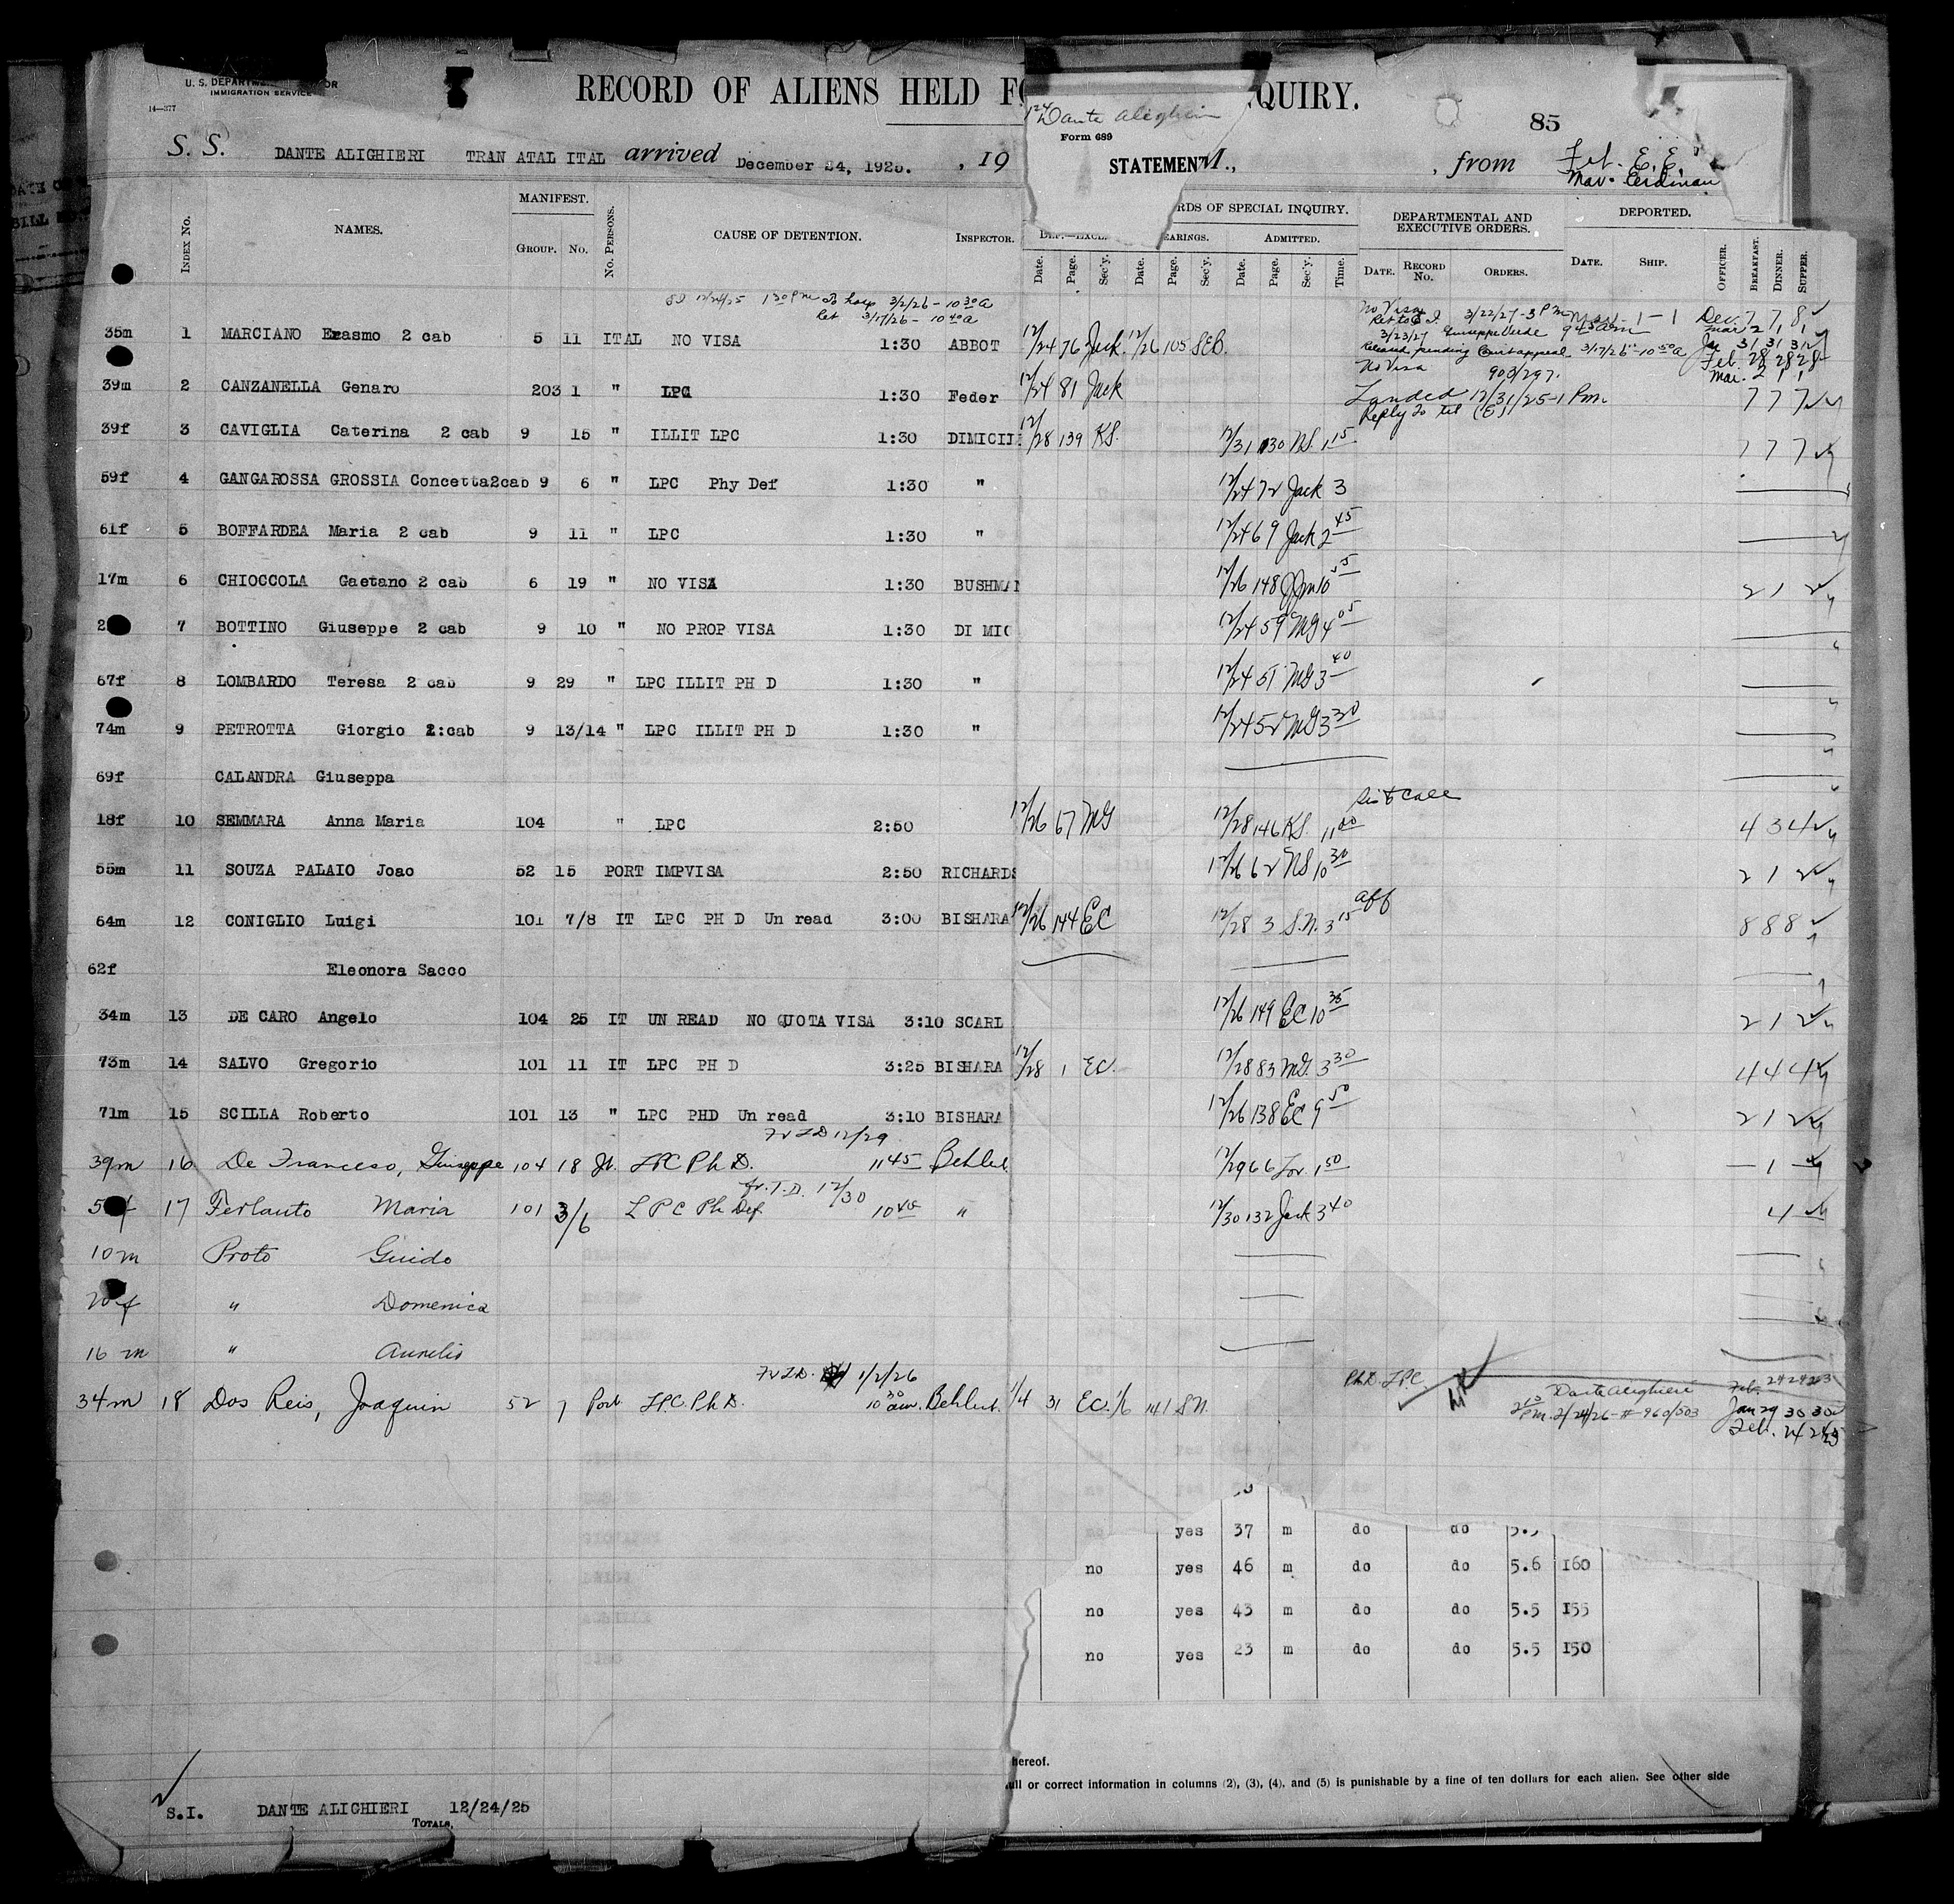 U. S. DEPARTMENT OF LABOR
IMMIGRATION SERVICE
14—377
RECORD OF ALIENS HELD F QUIRY.
Dante Alighieri
Form 689
STATEMENT
85
S. S. DANTE ALIGHIERI TRAN ATAL ITAL arrived December 24, 1925. , 19 M., , from
MANIFEST. RDS OF SPECIAL INQUIRY. DEPARTMENTAL AND EXECUTIVE ORDERS. DEPORTED.
Index No. NAMES. Group. No. No. Persons. CAUSE OF DETENTION. Inspector. EARINGS. Admitted.
Date. Page. Sec'y. Date. Page. Sec'y. Date. Page. Sec'y. Time. Date. Record No. Orders. Date. Ship. Officer. Breakfast. Dinner. Supper.
SI 12/24/25 1 30 Pm To hosp 3/2/26 - 10 30 a
Ret 3/17/26 - 10 40 a
35m 1 MARCIANO Erasmo 2 cab 5 11 ITAL NO VISA 1:30 ABBOT 12/24 76 Jack 12/26 105 SEB. No Visa 3/22/27 - 3 Pm Dec 7 7 8
3/23/27 Giuseppe Verde 9 45 am
Released pending Court appeal 3/17/26 - 10 50 a Feb. 28 28 28
39m 2 CANZANELLA Genaro 203 1 " LPC 1:30 Feder 12/24 81 Jack No Visa 903/297. Mar. 2 1 1
Landed 12/31/25 - 1 Pm. 7 7 7
Reply to tel (E)
39f 3 CAVIGLIA Caterina 2 cab 9 15 " ILLIT LPC 1:30 DIMICI 12/28 139 KS. 12/31 130 NS. 1 15 7 7 7
59f 4 GANGAROSSA GROSSIA Concetta2cab 9 6 " LPC Phy Def 1:30 " 12/24 72 Jack 3
61f 5 BOFFARDEA Maria 2 cab 9 11 " LPC 1:30 " 12/24 69 Jack 2 45
17m 6 CHIOCCOLA Gaetano 2 cab 6 19 " NO VISA 1:30 BUSHMAN 12/26 148 10 55 2 1 2
2 7 BOTTINO Giuseppe 2 cab 9 10 " NO PROP VISA 1:30 DI MIC 12/24 59 MG 4 05
67f 8 LOMBARDO Teresa 2 cab 9 29 " LPC ILLIT PH D 1:30 " 12/24 51 MG 3 40
74m 9 PETROTTA Giorgio 2:cab 9 13/14 " LPC ILLIT PH D 1:30 " 12/24 52 MG 3 30
69f CALANDRA Giuseppa
18f 10 SEMMARA Anna Maria 104 " LPC 2:50 12/26 67 MG 12/28 146 KS. 11 00 Sis to Call 4 3 4
55m 11 SOUZA PALAIO Joao 52 15 PORT IMPVISA 2:50 RICHARDS 12/26 62 NS 10 30 2 1 2
64m 12 CONIGLIO Luigi 101 7/8 IT LPC PH D Un read 3:00 BISHARA 12/26 144 EC 12/28 3 S.N. 3 15 aff 8 8 8
62f Eleonora Sacco
34m 13 DE CARO Angelo 104 25 IT UN READ NO QUOTA VISA 3:10 SCARL 12/26 149 EC 10 35 2 1 2
73m 14 SALVO Gregorio 101 11 IT LPC PH D 3:25 BISHARA 12/28 1 EC. 12/28 83 MG. 3 30 4 4 4
71m 15 SCILLA Roberto 101 13 " LPC PHD Un read 3:10 BISHARA 12/26 138 EC 9 50 2 1 2
Fr T.D 12/29
39m 16 De Franceso, Giuseppe 104 18 It. LPC Ph D. 11 45 12/29 66 1 50 — 1 —
fr. T.D. 12/30
5 f 17 Ferlauto Maria 101 3/6 LPC Ph Def 10 40 " 12/30 132 Jack 3 40 4
10m Proto Guido
20f " Domenica
16 m " Aurelio
Fr T.D. 1/2/26
34m 18 Dos Reis, Joaquin 52 7 Port LPC. Ph D. 10 30 am. 1/4 31 EC. 1/6 141 SN. PhD. LPC. Dante Alighieri
Pm. 2/24/26 - # 960/503 Jan 29 30 30
Feb. 24 24 23
yes 37 m do do 5.
no yes 46 m do do 5.6 160
no yes 43 m do do 5.5 155
no yes 23 m do do 5.5 150
hereof.
ull or correct information in columns (2), (3), (4), and (5) is punishable by a fine of ten dollars for each alien. See other side
S.I. DANTE ALIGHIERI 12/24/25
Totals,